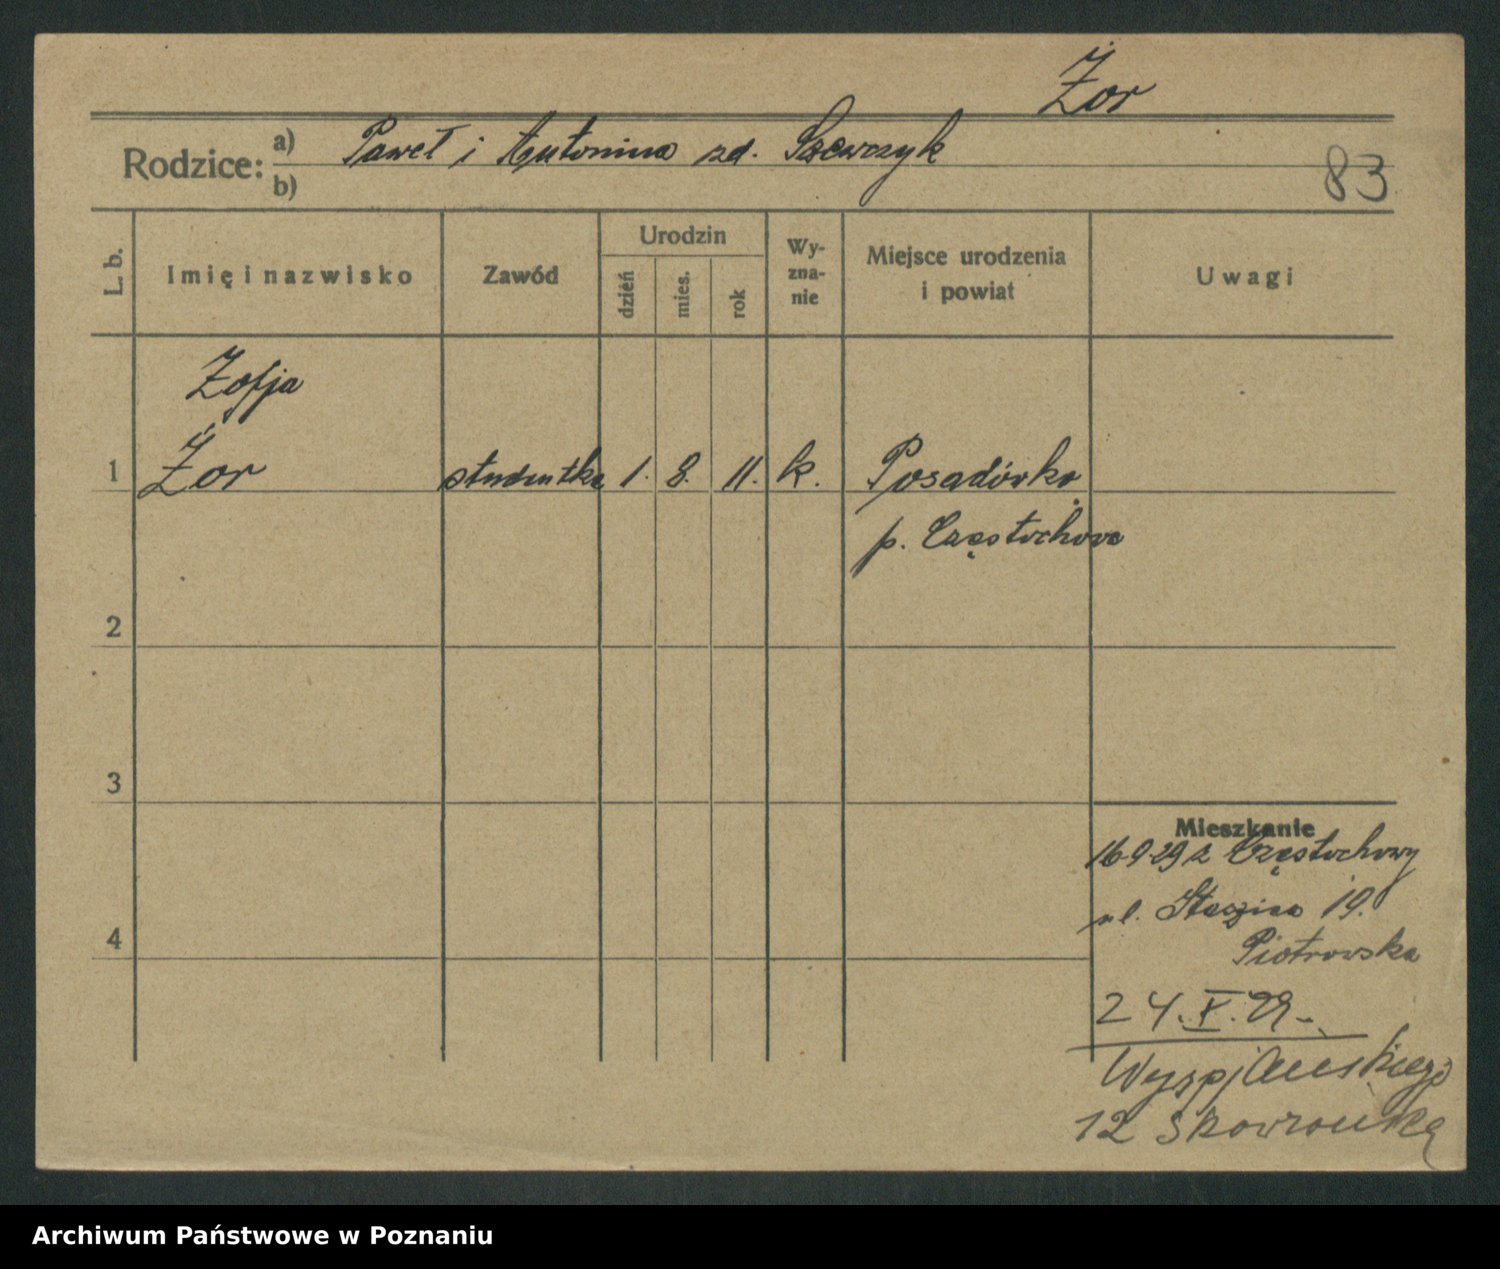 Żor
Rodzice: a) Paweł i Antonina zd. Szewczyk
b)
83
L. b.
Imię i nazwisko
Zawód
Urodzin
dzień
mies.
rok
Wy-
zna-
nie
Miejsce urodzenia
i powiat
Uwagi
Zofja
1 Żor studentka 1. 8. 11. k. Posadówka
p. Częstochowa
2
3
Mieszkanie
16.9.29 z Częstochowy
ul. Staszica 19.
4
Piotrowska
24.X.29.
Wyspjańskiego
12
Archiwum Państwowe w Poznaniu